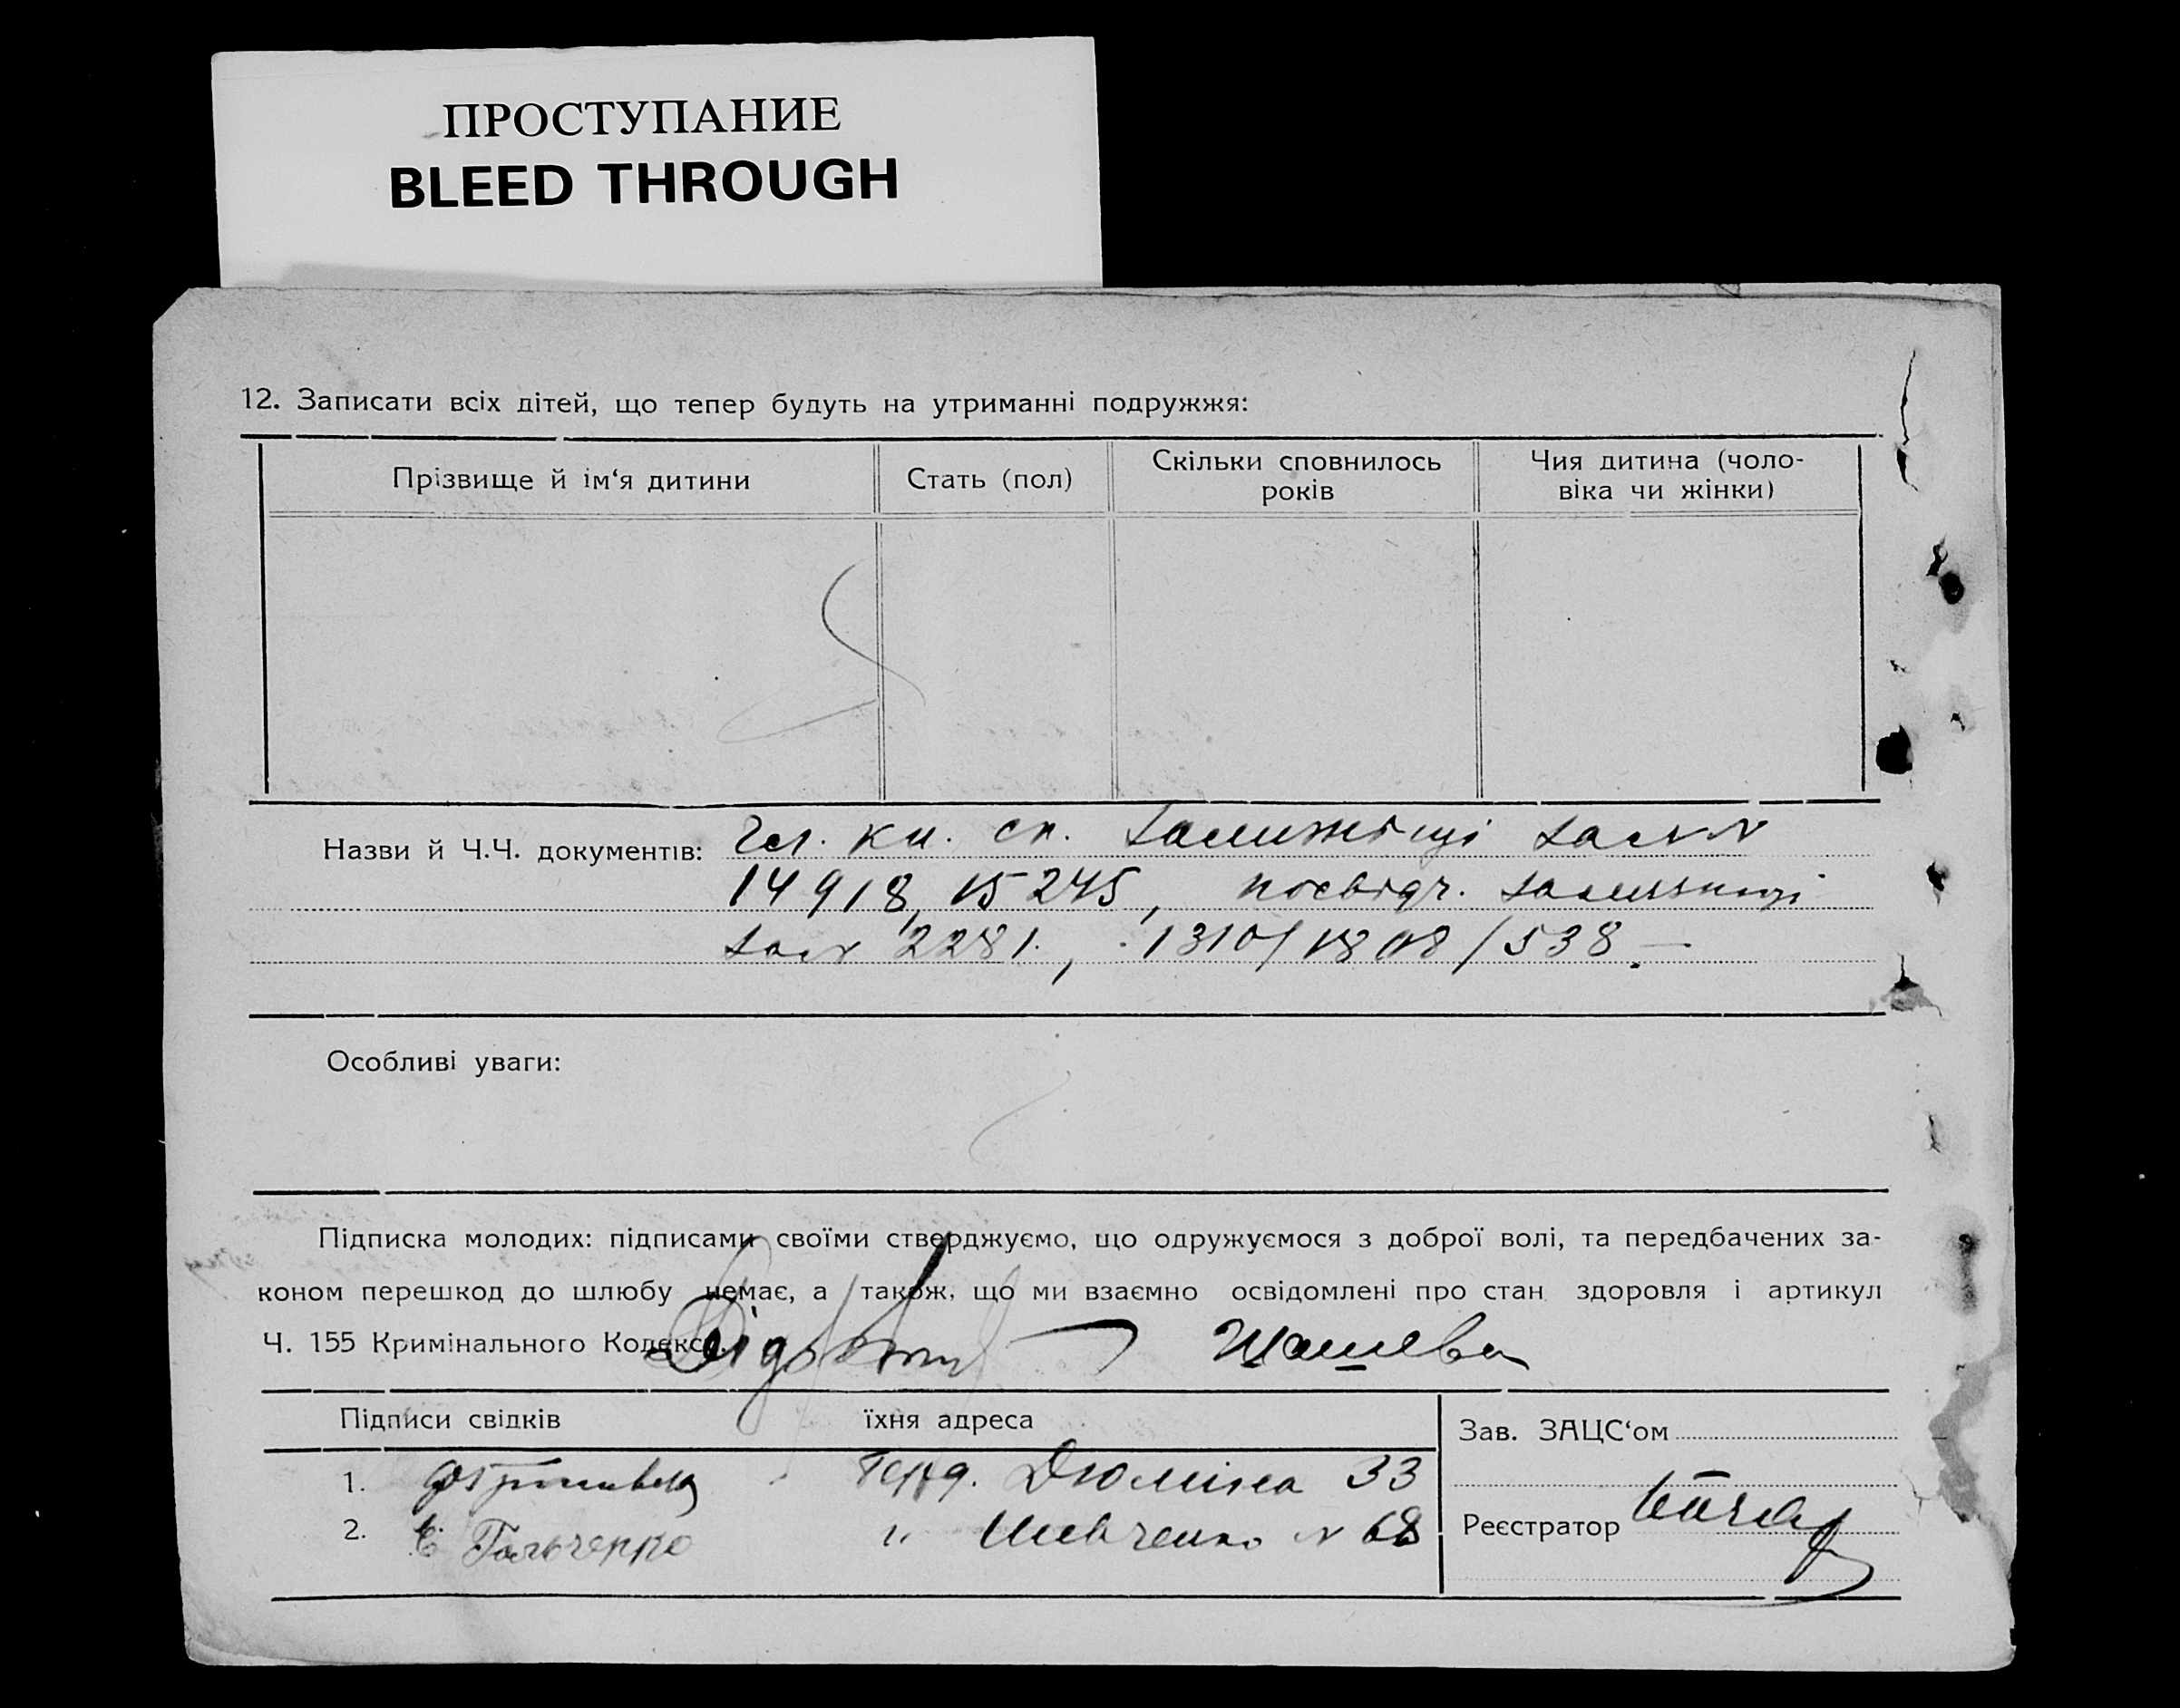 ПРОСТУПАНИЕ
BLEED THROUGH
12. Записати всіх дітей, що тепер будуть на утриманні подружжя:
Прізвище й ім‘я дитини
Стать (пол)
Скільки сповнилось
років
Чия дитина (чоло-
віка чи жінки)
Назви й Ч.Ч. документів: Чл. кн. сп.
14918, 15245, посвідч.
2281, 1310/1808/538.—
Особливі уваги:
Підписка молодих: підписами своїми стверджуємо, що одружуємося з доброї волі, та передбачених за-
коном перешкод до шлюбу немає, а також, що ми взаємно освідомлені про стан здоровля і артикул
Ч. 155 Кримінального Кодексу.
Підписи свідків
їхня адреса
1. Дюміна 33
2. Є. " Шевченко № 68
Зав. ЗАЦС‘ом
Реєстратор